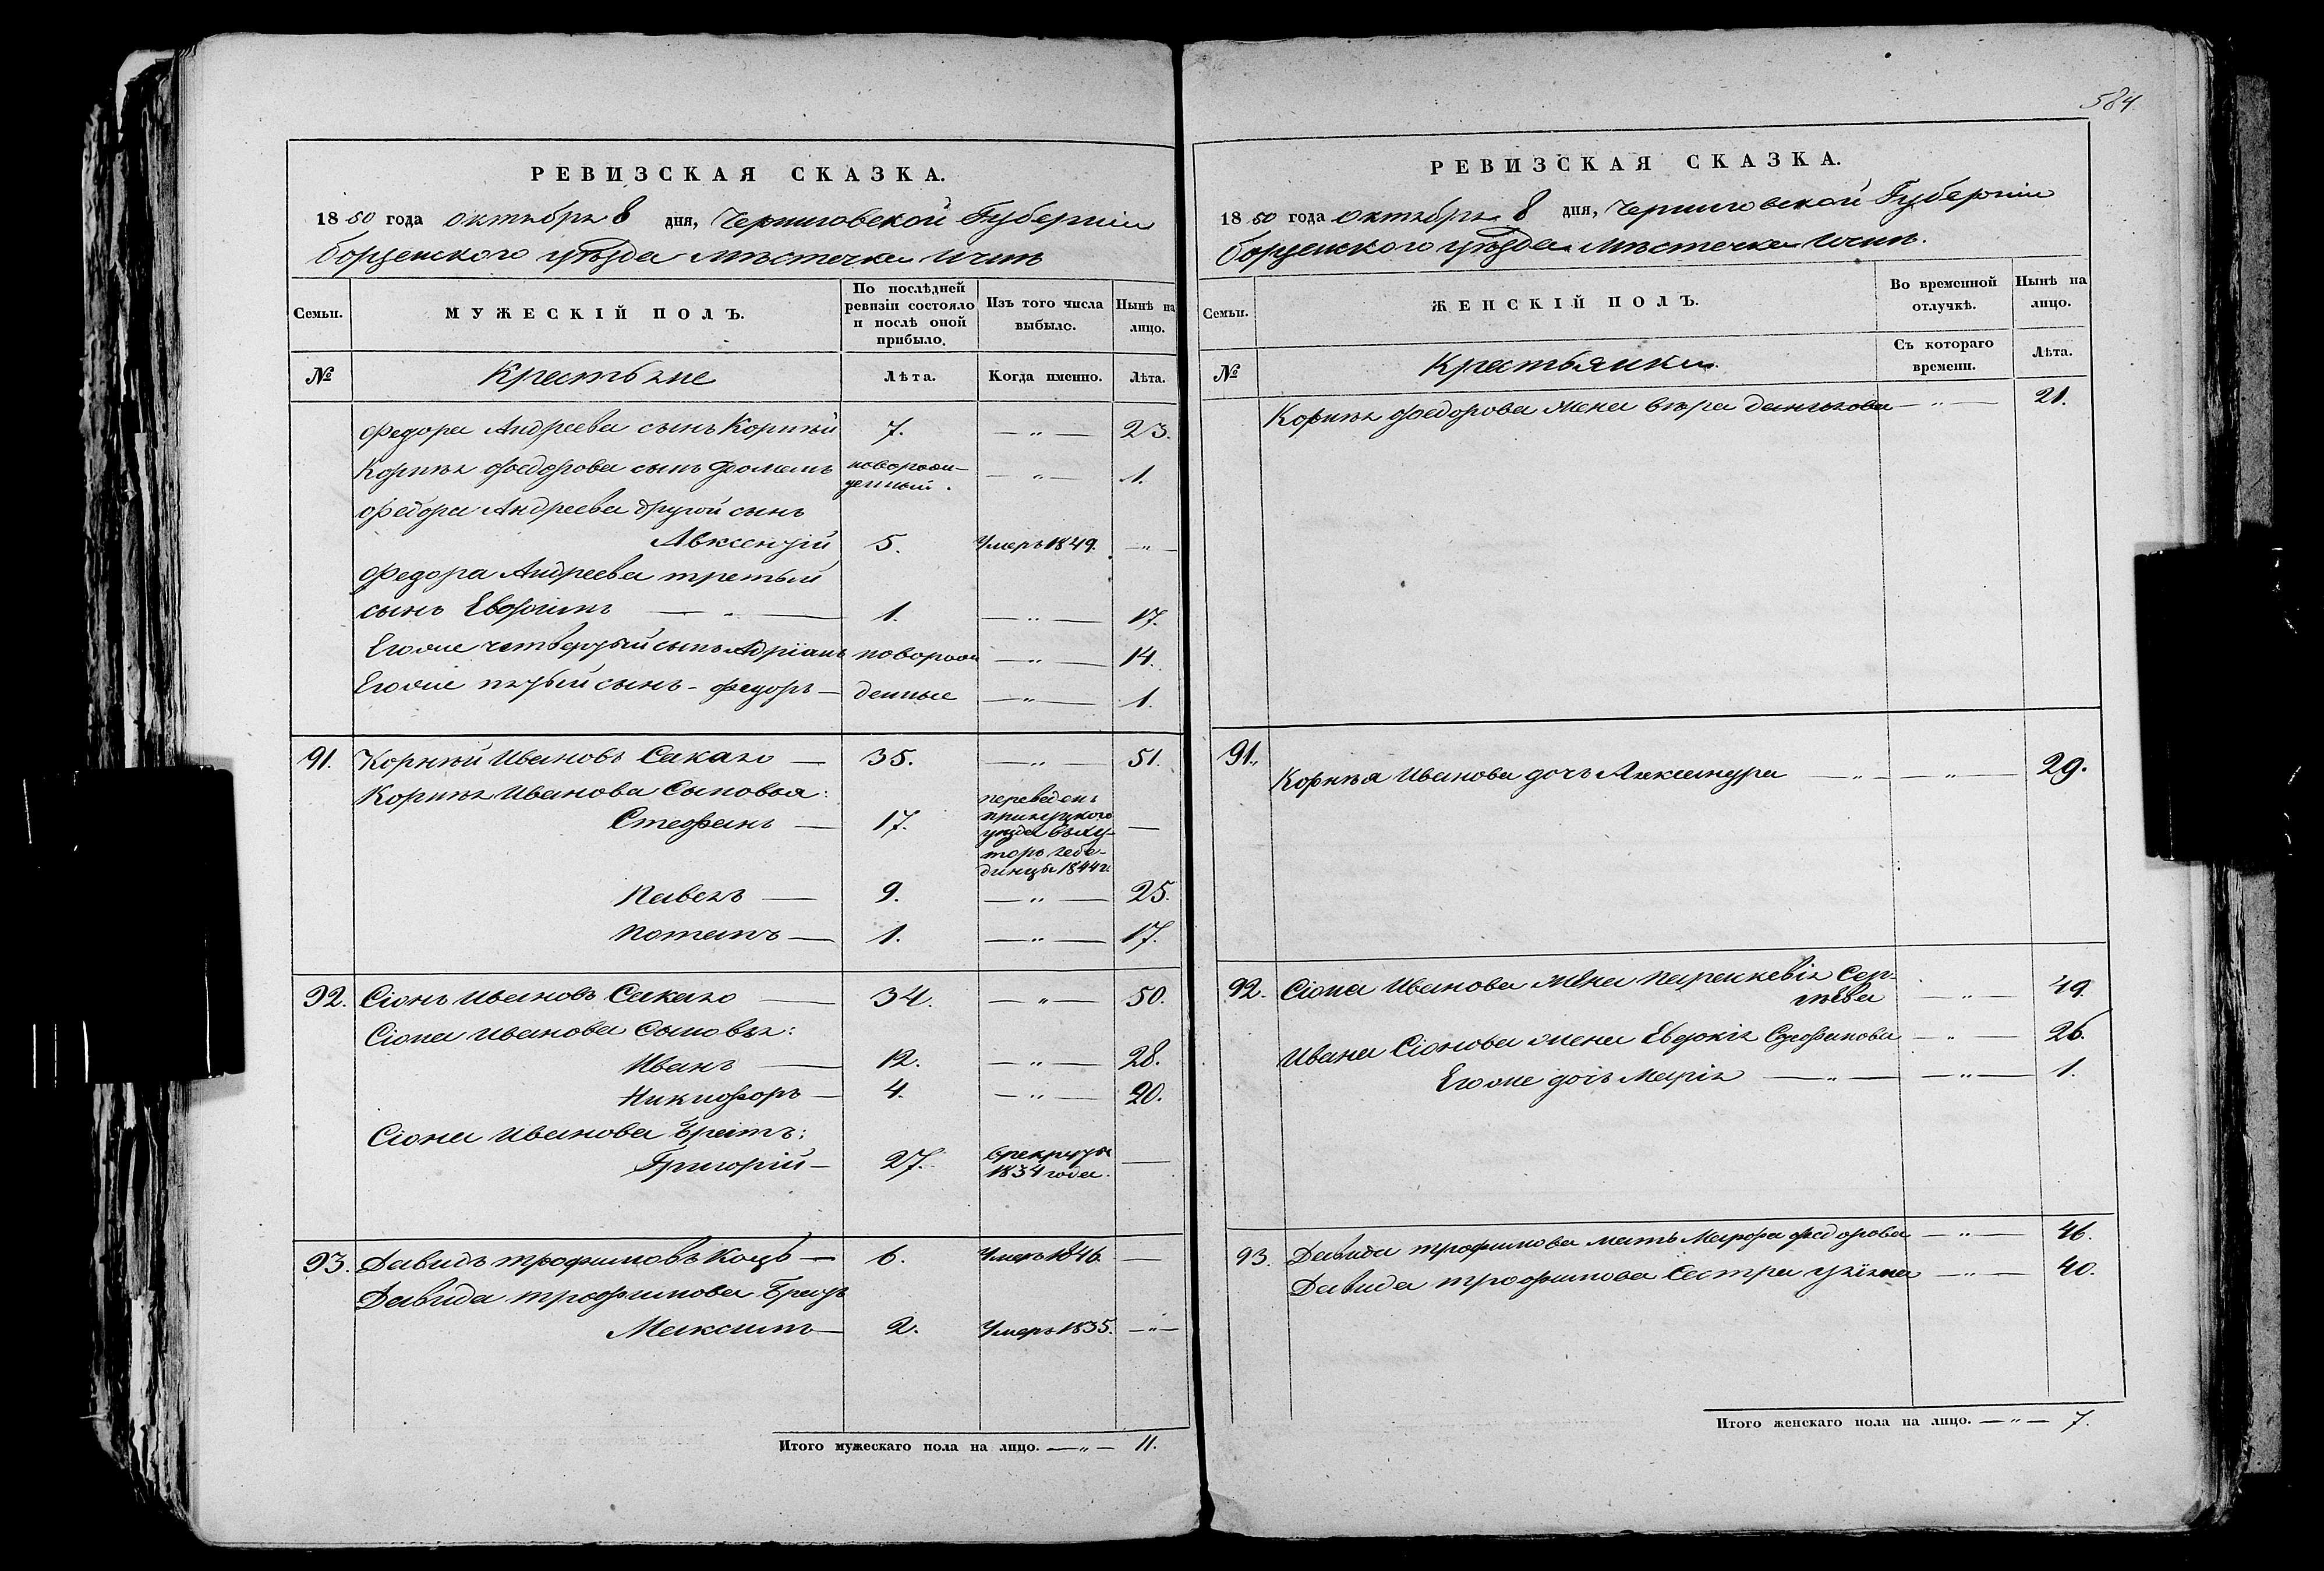 584
РЕВИЗСКАЯ СКАЗКА.
1850 года октября 8 дня, Черниговской Губерніи
борзенского уѣзда мѣстечка Ични
Семьи.
МУЖЕСКІЙ ПОЛЪ.
По послѣдней
ревизіи состояло
и послѣ оной
прибыло.
Изъ того числа
выбыло.
Нынѣ на
лицо.
№
Крестьяне
Лѣта.
Когда именно.
Лѣта.
Федора Андреева сынъ Корнѣй 7. — „ — 23.
Корнѣя Федорова сынъ новорож-
денный. — „ — 1.
Федора Андреева другой сынъ
Авксентій 5. Умеръ 1849. — „ —
Федора Андреева третьий
сынъ Евфимъ — „ — 1. — „ — 17.
Егоже четвертый сынъ Адріанъ новорож — „ — 14.
Егоже пятый сынъ - федоръ — денные — „ — 1.
91. Корнѣй Ивановъ Сакало — 35. — „ — 51.
Корнѣя Иванова Сыновья:
Стефанъ — 17. переведенъ
прилуцкого
уѣзда въ ху-
торъ лебе-
динцы 1844 г. —
Павелъ — 9. — „ — 25.
Потапъ — 1. — „ — 17.
92. Сіонъ Ивановъ Сакало — 34. — „ — 50.
Сіона Иванова Сыновья:
Иванъ — 12. — „ — 28.
Никифоръ — 4. — „ — 20.
Сіона Иванова братъ:
Григорій — 27. врекруты
1834 года. —
93. Давидъ трофимовъ Коцъ — 6. Умеръ 1846. —
Давида трофимова братъ
Максимъ — 2. Умеръ 1835. — „ —
Итого мужескаго пола на лицо. — „ — 11.
РЕВИЗСКАЯ СКАЗКА.
1850 года октября 8 дня, Черниговской Губерніи
борзенского уѣзда мѣстечка Ични.
Семьи.
ЖЕНСКІЙ ПОЛЪ.
Во временной
отлучкѣ.
Нынѣ на
лицо.
№
Крестьянки
Съ котораго
времени.
Лѣта.
Корнѣя федорова жена вѣра данилова — „ — 21.
91. Корнѣя Иванова дочь Александра — „ — — „ — 29.
92. Сіона Иванова жена параскевія Сер-
гѣева — „ — 49.
Ивана Сіонова жена Евдокія — „ — 26.
Егоже дочь Марія — „ — — „ — 1.
93. Давида трофимова мать Марфа федорова — „ — 46.
Давида трофимова Сестра — „ — 40.
Итого женскаго пола на лицо. — „ — 7.